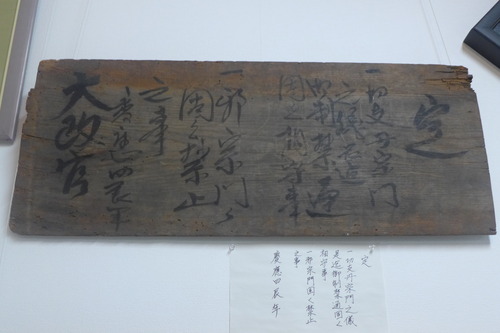 定
一切支丹宗門
之儀是迄
御制禁通
固く相守事
一邪宗門
固く禁止
之事
慶應四辰年
太政官
定
一切支丹宗門之儀
是迄御制禁通固く
相守事。
一邪宗門固く禁止
之事。
慶應四辰年